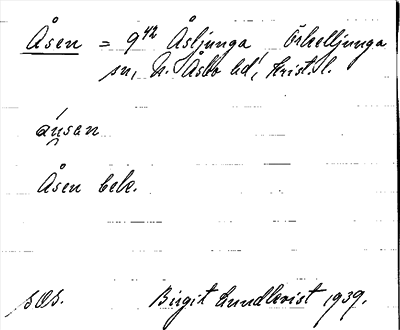 Åsen = 9⁴² Åsljunga Örkelljunga
sn, N. Åsbo hd, Krist. l.
áu̯san
Åsen bek.
Birgit Lundkvist 1939.